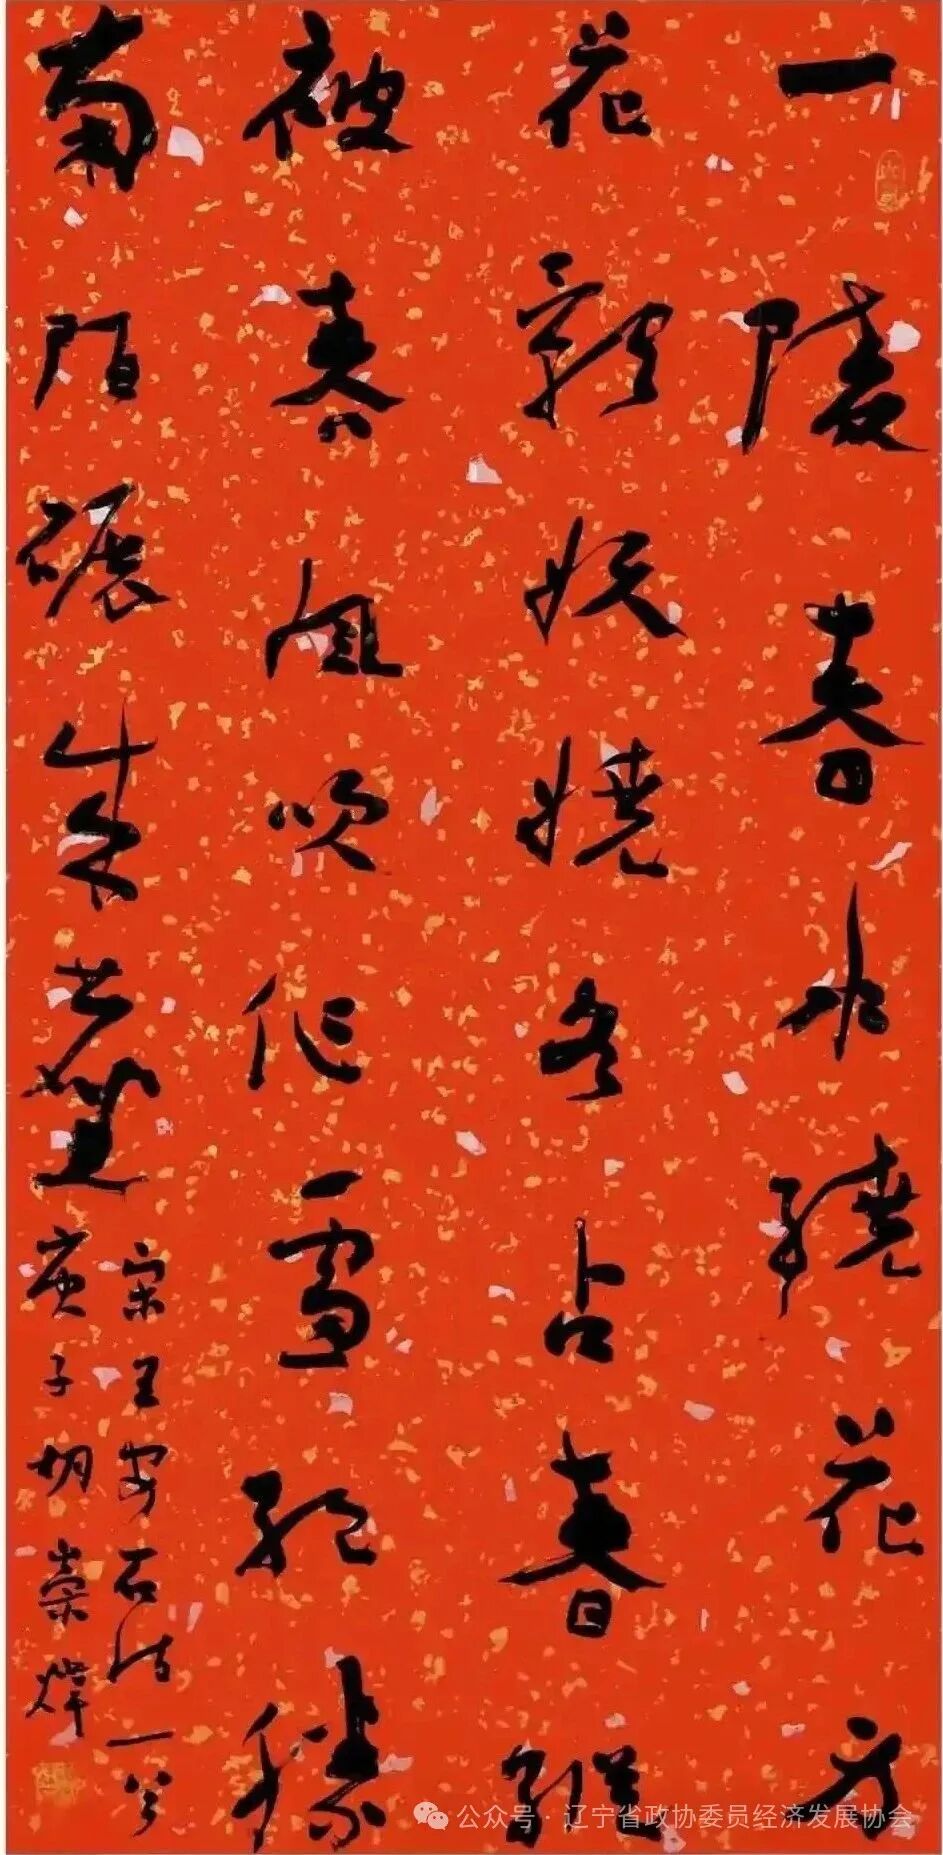 一陂春水繞花身
花影妖嬈各占春縱
被春風吹作雪絕勝
南陌碾成塵
宋王安石詩一首
庚子胡崇煒
公众号·辽宁省政协委员经济发展协会